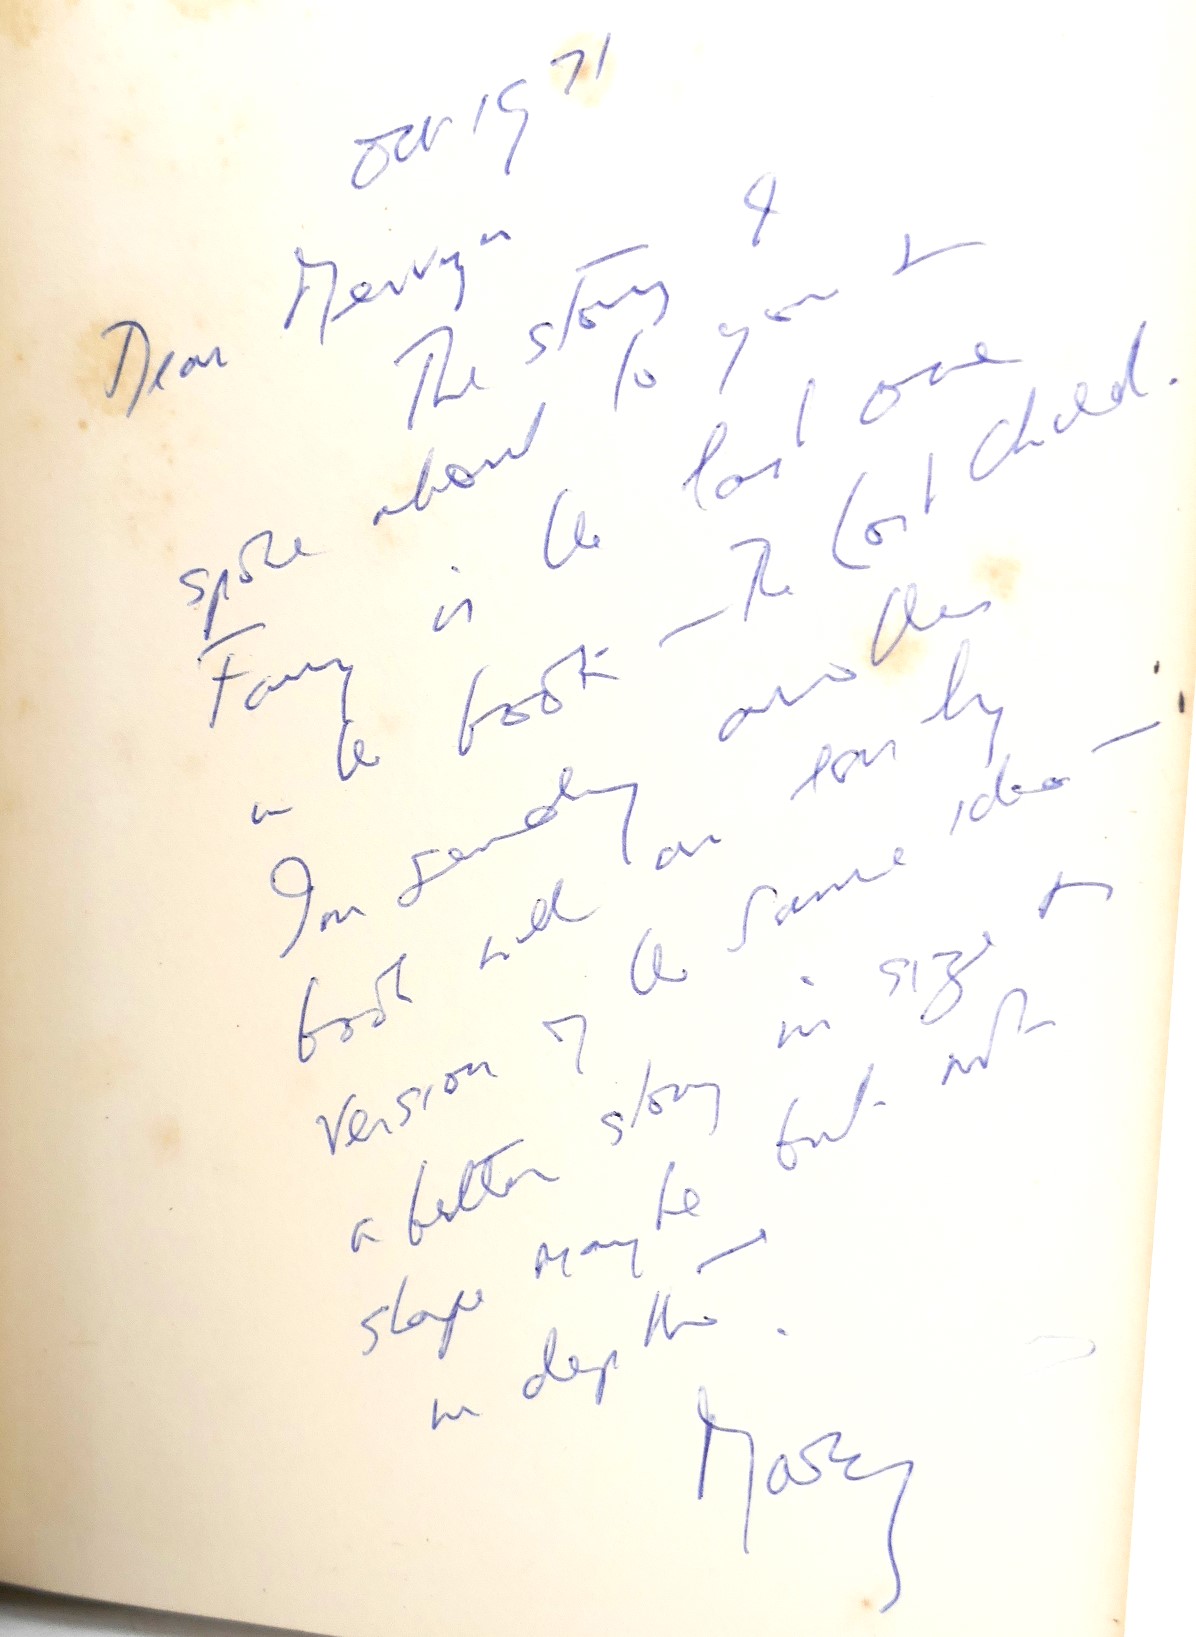 Oct 1971
Dear Mervyn
The story I
spoke about to you &
Fanny is the last one
in the book — The Lost Child.
I'm sending another
book with an early
version of the same idea —
a better story in size &
shape maybe but not
in depth.